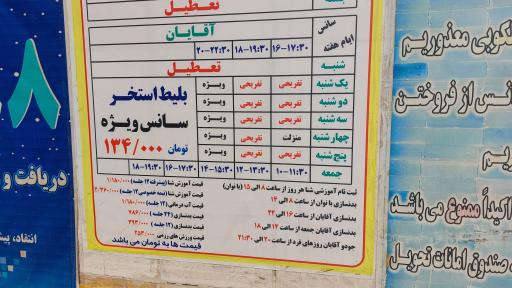 جمعه
تعطیل
سانس
ایام هفته
آقایان
۱۶-۱۷:۳۰ ۱۸-۱۹:۳۰ ۲۰-۲۲:۳۰
شنبه تعطیل
یک شنبه تفریحی تفریحی ویژه
دو شنبه تفریحی تفریحی ویژه
سه شنبه تفریحی تفریحی ویژه
چهار شنبه منزلت تفریحی ویژه
پنج شنبه تفریحی تفریحی ویژه
بلیط استخر
سانس ویژه
۱۳۴/۰۰۰ تومان
جمعه ۱۰-۱۱:۳۰ ۱۲-۱۳:۳۰ ۱۴-۱۵:۳۰ ۱۶-۱۷:۳۰ ۱۸-۱۹:۳۰
ثبت نام آموزشی شنا هر روز از ساعت ۸ الی ۱۵ (با نوان)
بدنسازی با نوان از ساعت ۸ الی ۱۴
بدنسازی آقایان از ساعت ۱۶ الی ۲۲
بدنسازی آقایان جمعه از ساعت ۱۴ الی ۱۸
جودو آقایان روزهای فرد از ساعت ۲۰ الی ۲۱:۳۰
قیمت آموزش شنا (پیشرفت ۱۲ جلسه) ۱/۱۸۰/۰۰۰
قیمت آموزش شنا (نیمه خصوصی ۱۲ جلسه)
قیمت آب درمانی (۱۲ جلسه) ۱/۱۸۰/۰۰۰
قیمت بدنسازی (۲۴ جلسه) ۷۸۶/۰۰۰
قیمت بدنسازی (۱۲ جلسه) ۳۹۳/۰۰۰
قیمت ورزش های رزمی
قیمت ها به تومان می باشد
۸
دریافت و
انتقاد، پیش
معذوریم
انس از فروختن
یم
اکیداً ممنوع می باشد
صندوق امانات تحویل